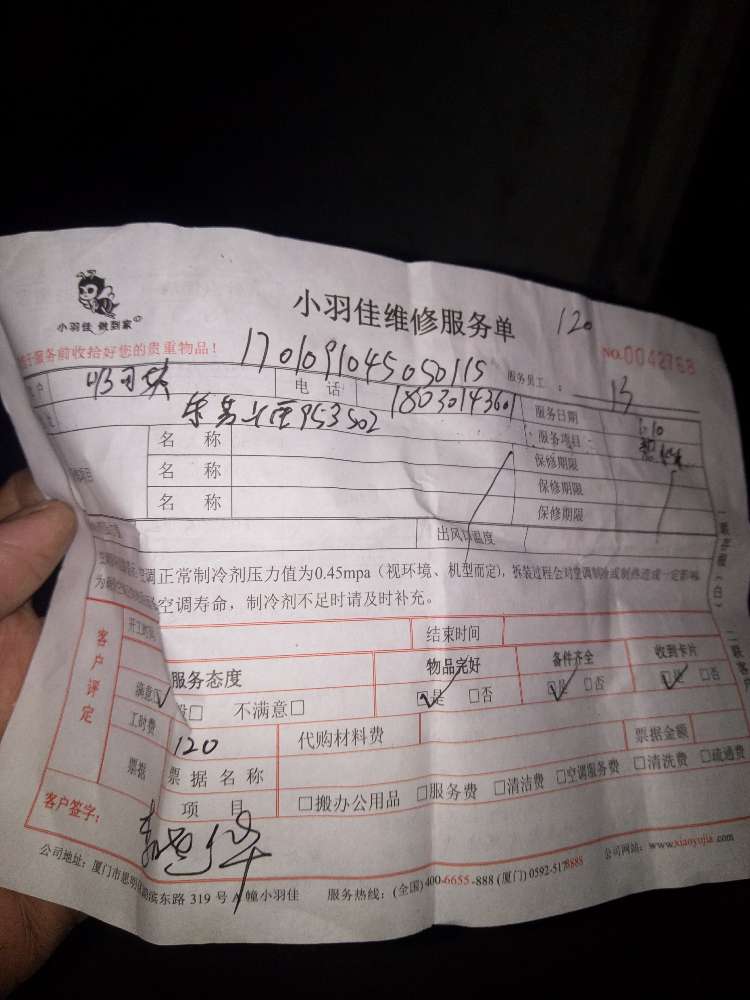 小羽佳 做到家
小羽佳维修服务单
120
NO.0042768
服务前收拾好您的贵重物品！
1701091045050115
服务员工：
13
户
电 话
18030143601
服务日期
6.10
953502
服务项目
名 称
保修期限
名 称
保修期限
名 称
保修期限
出风口温度
空调正常制冷剂压力值为0.45mpa（视环境、机型而定），拆装过程会对空调制冷或制热造成一定影响
空调寿命，制冷剂不足时请及时补充。
客户评定
开工时间
结束时间
服务态度
物品完好
备件齐全
收到卡片
满意☑ 般□ 不满意□
☑是 □否
☑是 □否
☑是 □否
工时费
120
代购材料费
票据金额
票据
票据名称
项 目
□搬办公用品 □服务费 □清洁费 □空调服务费 □清洗费 □疏通费
客户签字：
公司地址：厦门市思明区湖滨东路 319 号 A 幢小羽佳
服务热线：(全国)400-6655-888 (厦门)0592-5178885
公司网站：www.xiaoyujia.com